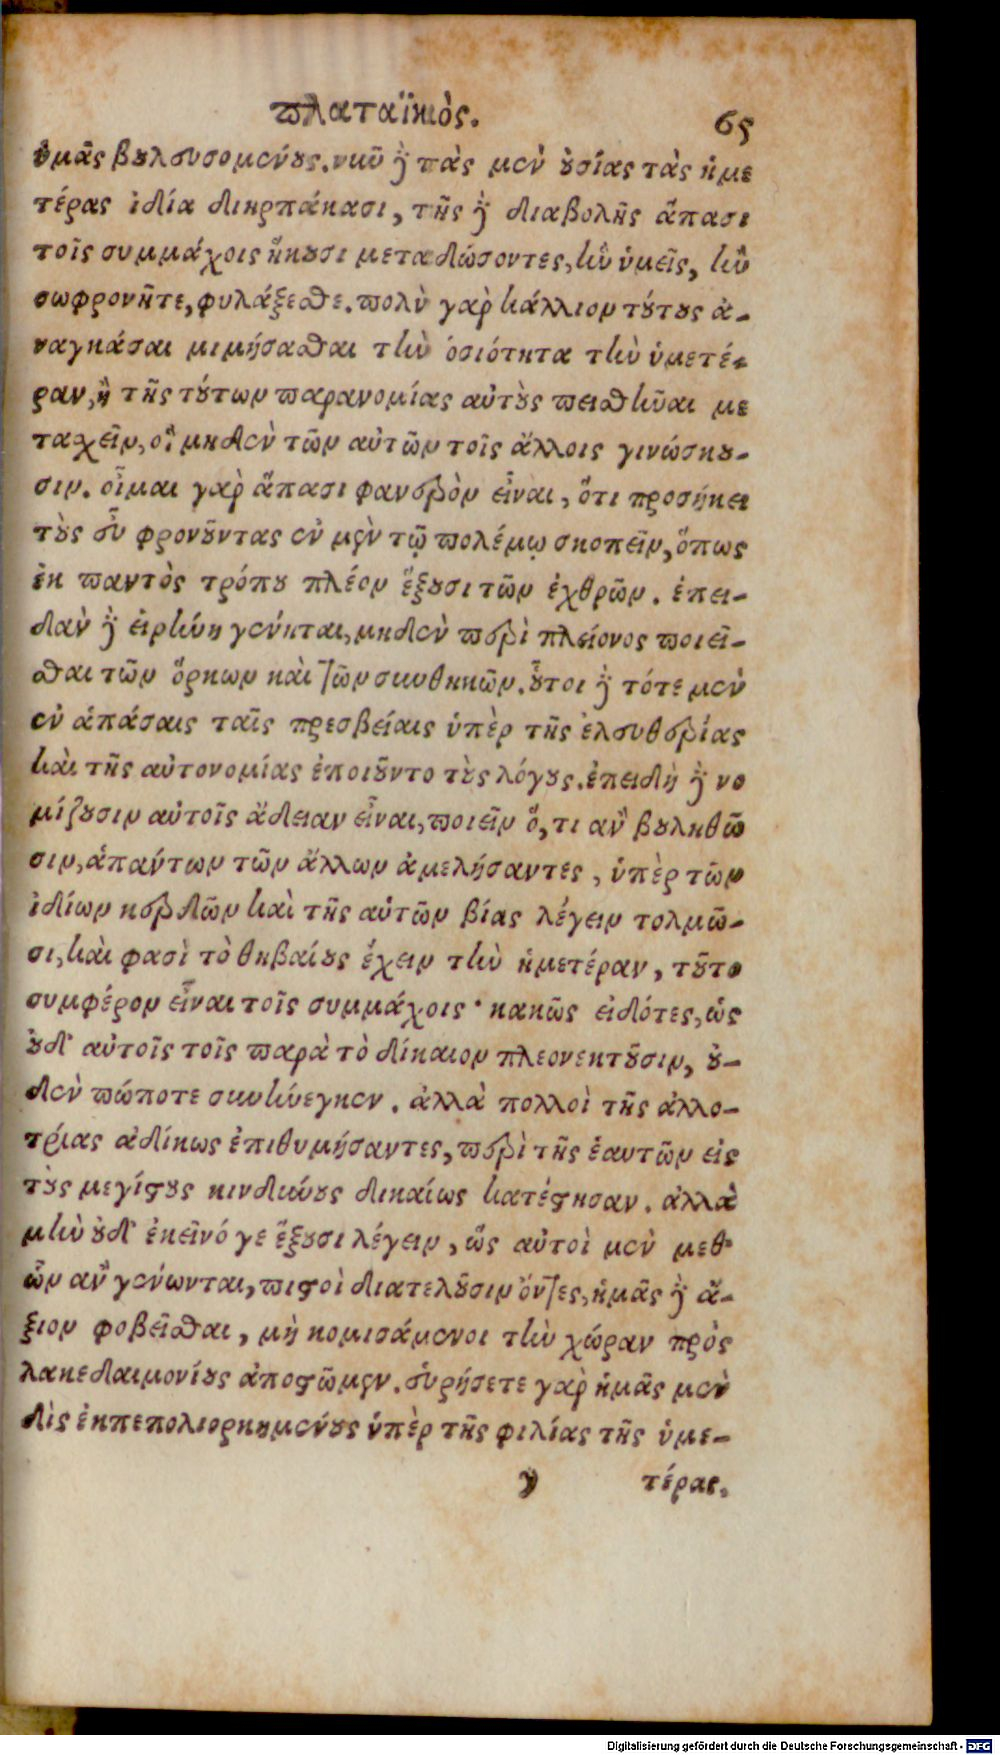 πλαταϊκὸς. 65
ὑμᾶς βουλευσομένους. νῦν δὲ πὰς μὲν οὐσίας τὰς ἡμε
τέρας ἰδία διηρπάκασι, τῆς δὲ διαβολῆς ἅπασι
τοῖς συμμάχοις ἥκουσι μεταδώσοντες, ἣν ὑμεῖς, ἢν
σωφρονῆτε, φυλάξεσθε. πολὺ γὰρ κάλλιον τούτους ἀ-
ναγκάσαι μιμήσασθαι τὴν ὁσιότητα τὴν ὑμετέ-
ραν, ἢ τῆς τούτων παρανομίας αὐτοὺς πεισθῆναι με
ταχεῖν, οἳ μηδὲν τῶν αὐτῶν τοῖς ἄλλοις γινώσκου-
σιν. οἶμαι γὰρ ἅπασι φανερὸν εἶναι, ὅτι προσήκει
τοὺς εὖ φρονοῦντας ἐν μὲν τῷ πολέμῳ σκοπεῖν, ὅπως
ἐκ παντὸς τρόπου πλέον ἕξουσι τῶν ἐχθρῶν. ἐπει-
δὰν δὲ εἰρήνη γένηται, μηδὲν περὶ πλείονος ποιεῖ-
σθαι τῶν ὅρκων καὶ τῶν συνθηκῶν. οὗτοι δὲ τότε μὲν
ἐν ἁπάσαις ταῖς πρεσβείαις ὑπὲρ τῆς ἐλευθερίας
καὶ τῆς αὐτονομίας ἐποιοῦντο τοὺς λόγους. ἐπειδὴ δὲ νο
μίζουσιν αὐτοῖς ἄδειαν εἶναι, ποιεῖν ὅ, τι ἂν βουληθῶ
σιν, ἁπάντων τῶν ἄλλων ἀμελήσαντες, ὑπὲρ τῶν
ἰδίων κερδῶν καὶ τῆς αὑτῶν βίας λέγειν τολμῶ-
σι, καὶ φασὶ τὸ θηβαίους ἔχειν τὴν ἡμετέραν, τοῦτο
συμφέρον εἶναι τοῖς συμμάχοις· κακῶς εἰδότες, ὡς
οὐδ' αὐτοῖς τοῖς παρὰ τὸ δίκαιον πλεονεκτοῦσιν, οὐ-
δὲν πώποτε συνήνεγκεν. ἀλλὰ πολλοὶ τῆς ἀλλο-
τρίας ἀδίκως ἐπιθυμήσαντες, περὶ τῆς ἑαυτῶν εἰς
τοὺς μεγίστους κινδύνους δικαίως κατέστησαν. ἀλλὰ
μὴν οὐδ' ἐκεῖνό γε ἕξουσι λέγειν, ὥς αὐτοὶ μὲν μεθ'
ὧν ἂν γένωνται, πιστοὶ διατελοῦσιν ὄντες, ἡμᾶς δὲ ἄ-
ξιον φοβεῖσθαι, μὴ κομισάμενοι τὴν χώραν πρὸς
λακεδαιμονίους ἀποστῶμεν. εὑρήσετε γὰρ ἡμᾶς μὲν
δὶς ἐκπεπολιορκημένους ὑπὲρ τῆς φιλίας τῆς ὑμε-
y τέρας.
Digitalisierung gefördert durch die Deutsche Forschungsgemeinschaft - DFG